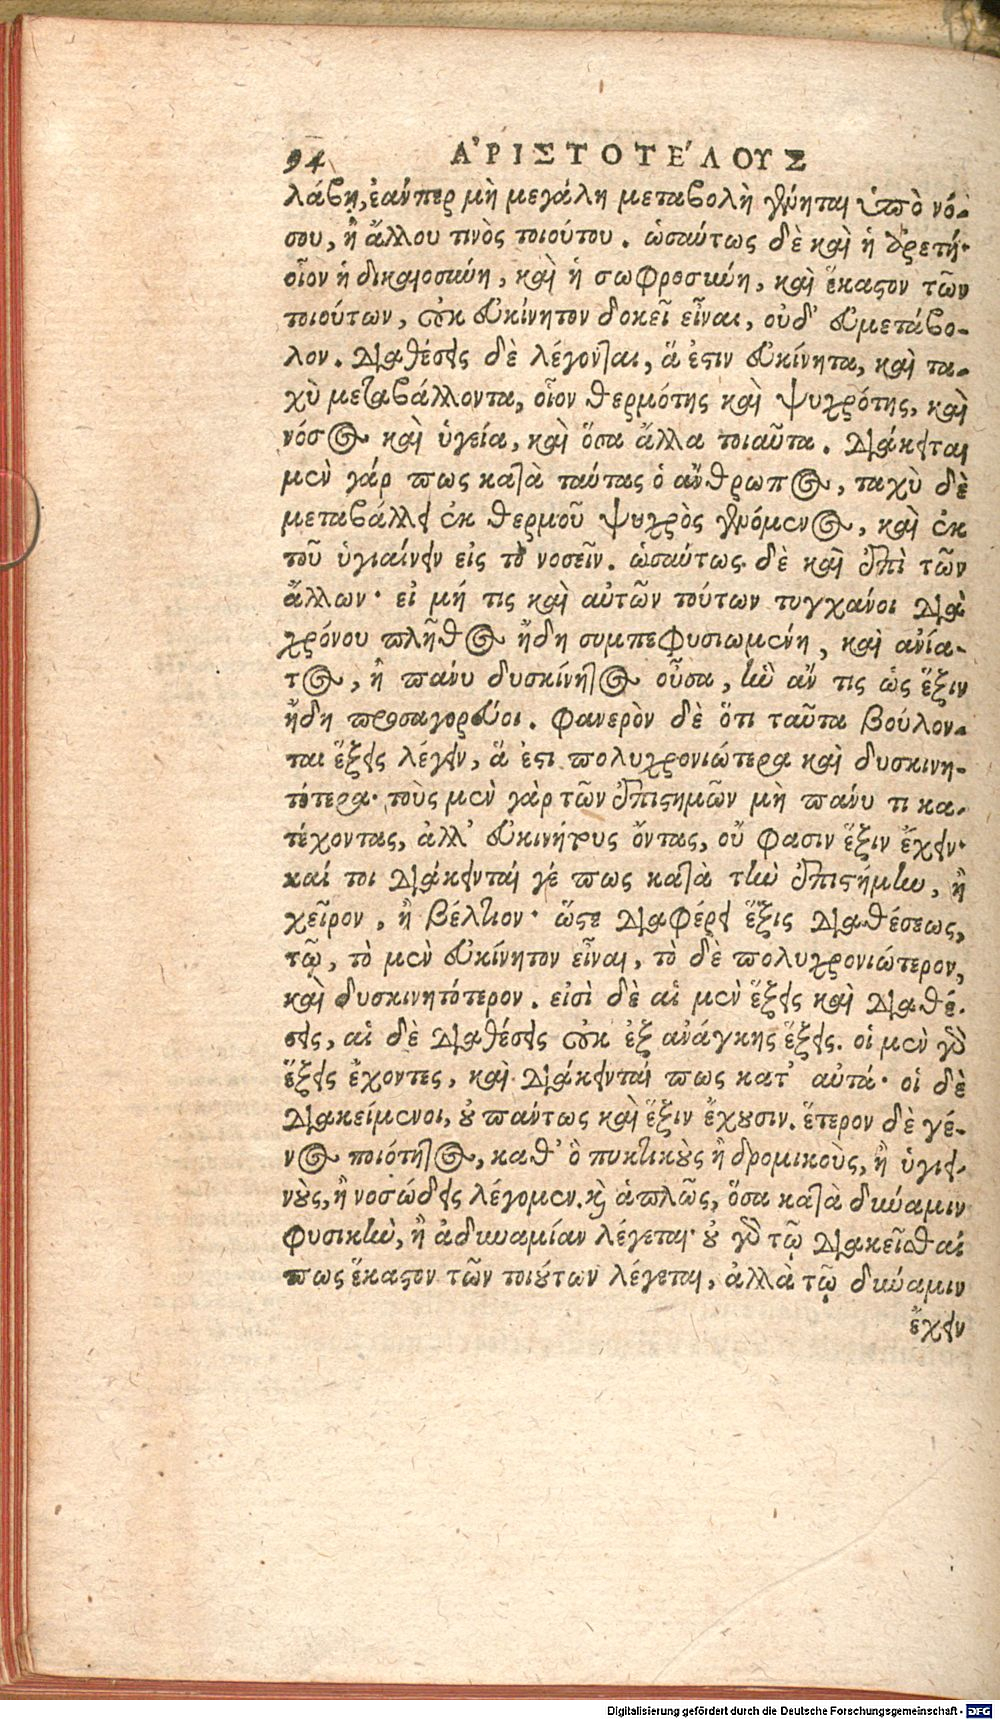 94 ΑʹΡΙΣΤΟΤΕʹΛΟΥΣ
λάβῃ, ἐάνπερ μὴ μεγάλη μεταβολὴ γένηται ὑπὸ νό-
σου, ἢ ἄλλου τινὸς τοιούτου. ὡσαύτως δὲ καὶ ἡ ἀρετή·
οἷον ἡ δικαιοσύνη, καὶ ἡ σωφροσύνη, καὶ ἕκαστον τῶν
τοιούτων, οὐκ εὐκίνητον δοκεῖ εἶναι, οὐδ' εὐμετάβο-
λον. διαθέσεις δὲ λέγονται, ἅ ἐστιν εὐκίνητα, καὶ τα-
χὺ μεταβάλλοντα, οἷον θερμότης καὶ ψυχρότης, καὶ
νόσος καὶ ὑγεία, καὶ ὅσα ἄλλα τοιαῦτα. διάκειται
μὲν γάρ πως κατὰ ταύτας ὁ ἄνθρωπος, ταχὺ δὲ
μεταβάλλει ἐκ θερμοῦ ψυχρὸς γενόμενος, καὶ ἐκ
τοῦ ὑγιαίνειν εἰς τὸ νοσεῖν. ὡσαύτως δὲ καὶ ἐπὶ τῶν
ἄλλων· εἰ μή τις καὶ αὐτῶν τούτων τυγχάνοι διὰ
χρόνου πλῆθος ἤδη συμπεφυσιωμένη, καὶ ἀνία-
τος, ἢ πάνυ δυσκίνητος οὖσα, ἣν ἄν τις ὡς ἕξιν
ἤδη προσαγορεύοι. φανερὸν δὲ ὅτι ταῦτα βούλον-
ται ἕξεις λέγειν, ἅ ἐστι πολυχρονιώτερα καὶ δυσκινη-
τότερα· τοὺς μὲν γὰρ τῶν ἐπιστημῶν μὴ πάνυ τι κα-
τέχοντας, ἀλλ' εὐκινήτους ὄντας, οὔ φασιν ἕξιν ἔχειν·
καί τοι διάκεινταί γέ πως κατὰ τὴν ἐπιστήμην, ἢ
χεῖρον, ἢ βέλτιον· ὥστε διαφέρει ἕξις διαθέσεως,
τῷ, τὸ μὲν εὐκίνητον εἶναι, τὸ δὲ πολυχρονιώτερον,
καὶ δυσκινητότερον. εἰσὶ δὲ αἱ μὲν ἕξεις καὶ διαθέ-
σεις, αἱ δὲ διαθέσεις οὐκ ἐξ ἀνάγκης ἕξεις. οἱ μὲν γὰρ
ἕξεις ἔχοντες, καὶ διάκεινταί πως κατ' αὐτά· οἱ δὲ
διακείμενοι, οὐ πάντως καὶ ἕξιν ἔχουσιν. ἕτερον δὲ γέ-
νος ποιότητος, καθ' ὃ πυκτικοὺς ἢ δρομικοὺς, ἢ ὑγιει-
νοὺς, ἢ νοσώδεις λέγομεν. καὶ ἁπλῶς, ὅσα κατὰ δύναμιν
φυσικὴν, ἢ ἀδυναμίαν λέγεται· οὐ γὰρ τῷ διακεῖσθαί
πως ἕκαστον τῶν τοιούτων λέγεται, ἀλλὰ τῷ δύναμιν
ἔχειν
Digitalisierung gefördert durch die Deutsche Forschungsgemeinschaft - DFG